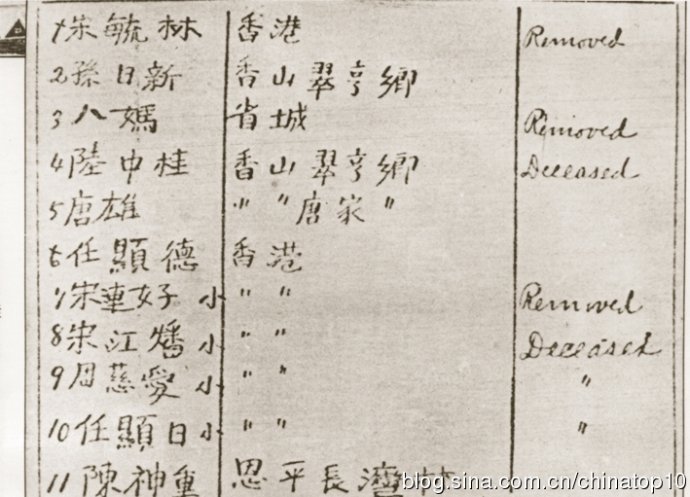 1 宋毓林 香港 Removed
2 孫日新 香山翠亨鄉
3 八媽 省城 Removed
4 陸中桂 香山翠亨鄉 Deceased
5 唐雄 〃 〃 唐家 〃
6 任顯德 香港
7 宋連好 小 〃 〃 Removed
8 宋江燔 小 〃 〃 Deceased
9 周慈愛 小 〃 〃 〃
10 任顯日 小 〃 〃 〃
11 陳神重 恩平長灣村
blog.sina.com.cn/chinatop10